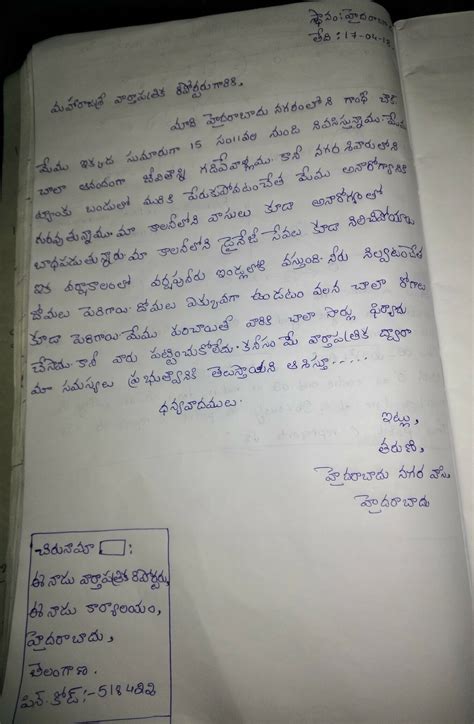 స్థానం: హైదరాబాదు
తేది: 17-04-18
మహారాజశ్రీ వార్తాపత్రిక రిపోర్టరుగారికి,
మాది హైదరాబాదు నగరంలోని గాంధీ చౌక్.
మేము ఇక్కడ సుమారుగా 15 సం॥వల నుండి నివసిస్తున్నాము. మేము
చాలా ఆనందంగా జీవితాన్ని గడిపేవాళ్ళము. కానీ నగర శివారులోని
ట్యాంకు బండులో మురికి పేరుకుపోవటంచేత మేము అనారోగ్యానికి
గురవుతున్నాము. మా కాలనీలోని వాసులు కూడా అనారోగ్యంతో
బాధపడుతున్నారు. మా కాలనీలోని డ్రైనేజీ సేవలు కూడా నిలిచిపోయాయి.
ఇక వర్షాకాలంలో వర్షపునీరు ఇండ్లలోకి వస్తుంది. నీరు నిల్వటంచేత
దోమలు పెరిగాయి. దోమలు ఎక్కువగా ఉండటం వలన చాలా రోగాలు
కూడా పెరిగాయి. మేము పంచాయితీ వారికి చాలా సార్లు ఫిర్యాదు
చేసాము. కానీ వారు పట్టించుకోలేదు. కనీసం మీ వార్తాపత్రిక ద్వారా
మా సమస్యలు ప్రభుత్వానికి తెలుస్తాయని ఆశిస్తూ......
ధన్యవాదములు.
ఇట్లు,
తరుణి,
హైదరాబాదు నగర వాసి,
హైదరాబాదు
చిరునామా :
ఈనాడు వార్తాపత్రిక రిపోర్టరు,
ఈనాడు కార్యాలయం,
హైదరాబాదు,
తెలంగాణ.
పిన్ కోడ్:-